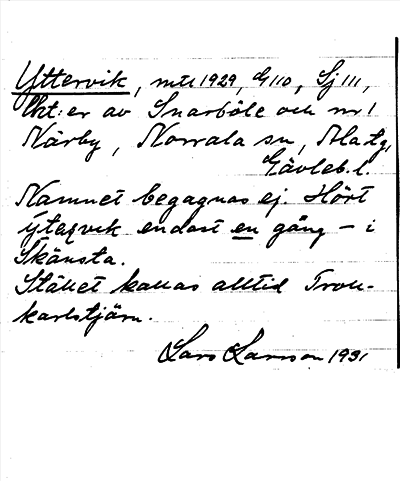 Yttervik, mtl 1929, G 110, Sj 111,
lkt:er av Snarböle och nr 1
Närby, Norrala sn, Ala tg,
Gävleb. l.
Namnet begagnas ej. Hört
ýtəṛvik endast en gång – i
Skänsta.
Stället kallas alltid Troll-
karlstjärn.
Lars Larsson 1931